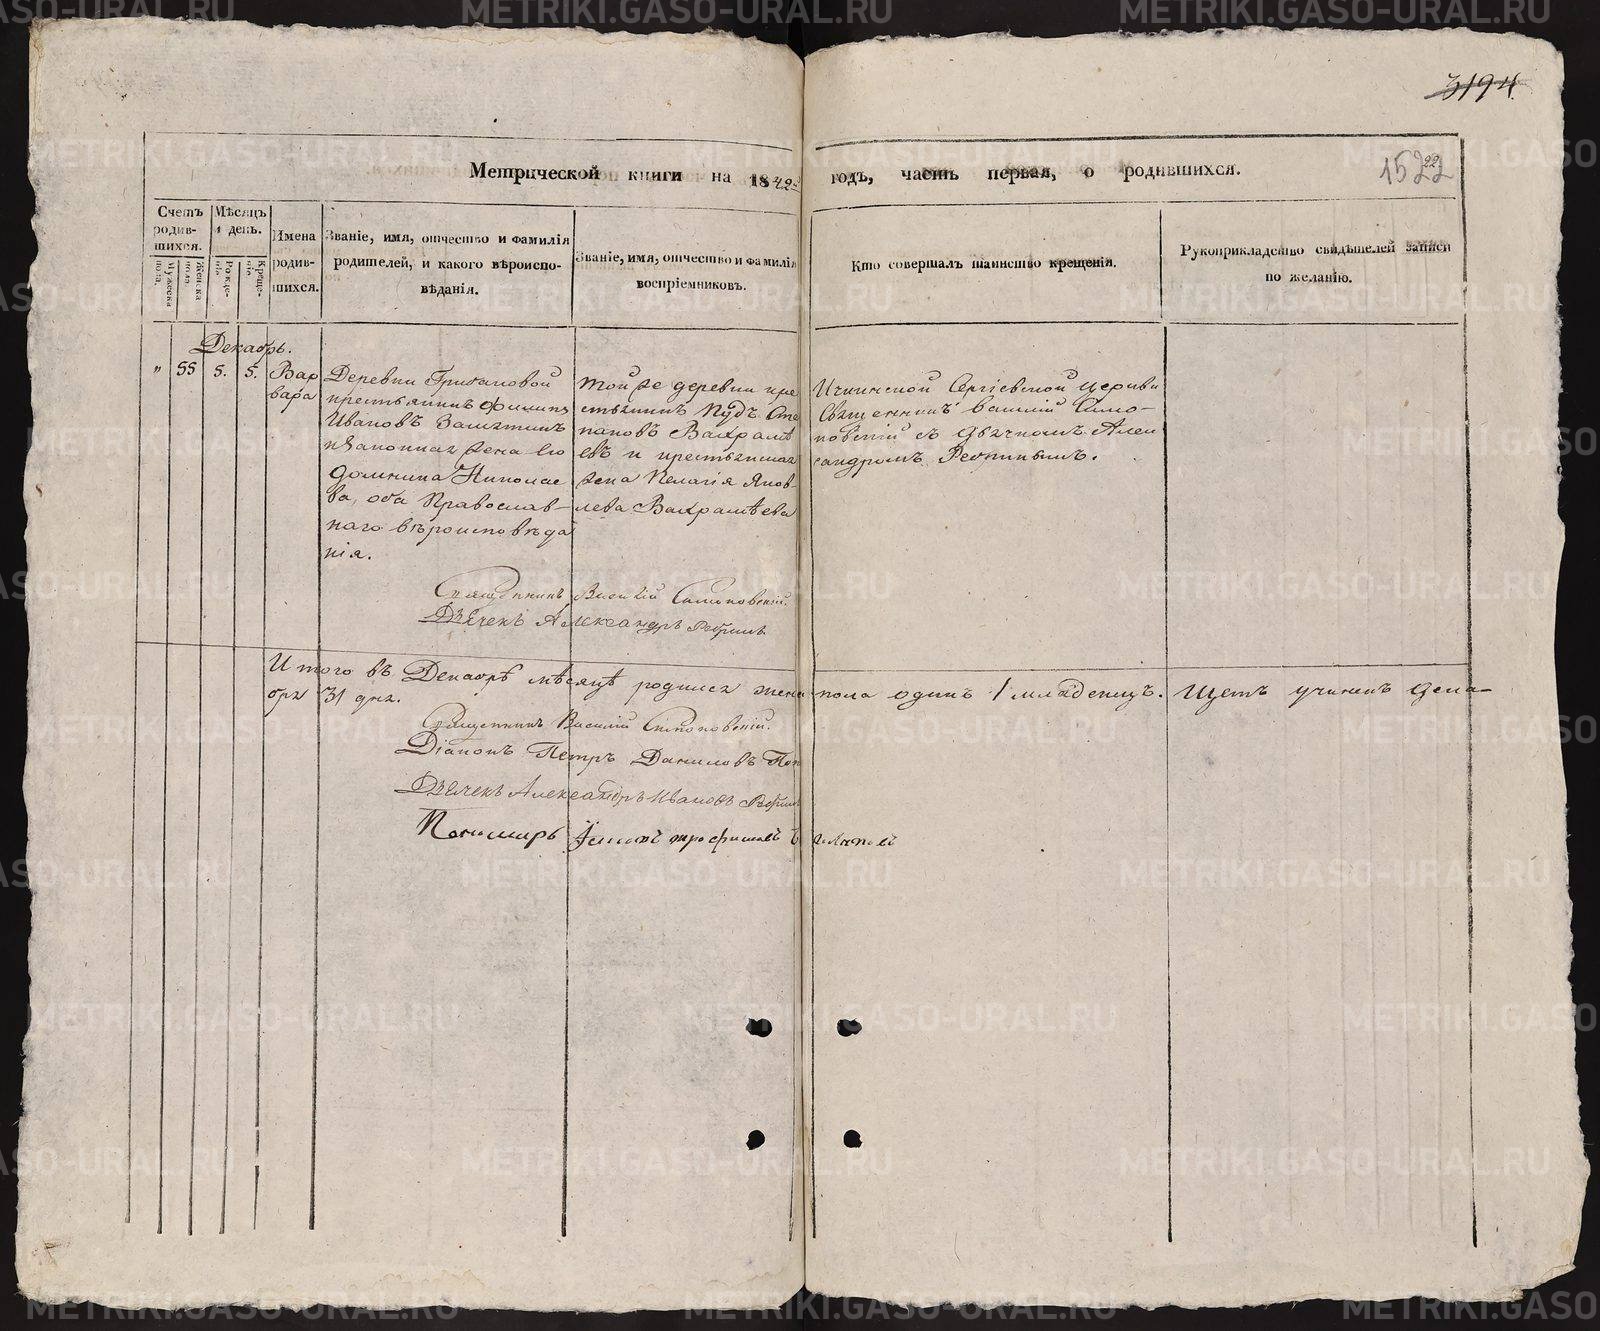 3194
1522
22
Метрической книги на 1842
годъ, часть первая, о родившихся.
Счетъ родившихся.
Мужеска пола.
Женска пола.
Мѣсяцъ и день.
Рожденія.
Крещенія.
Имена родившихся.
Званіе, имя, отчество и фамилія
родителей, и какого вѣроиспо-
вѣданія.
Званіе, имя, отчество и фамилія
воспріемниковъ.
Кто совершалъ таинство крещенія.
Рукоприкладство свидѣтелей записи
по желанію.
Декабрь.
" 55 5. 5.
Вар
вара
Деревни
крестьянинъ Филипъ
Ивановъ
и законная жена его
Домника Николае
ва, оба Православ-
наго вѣроисповѣда
нія.
той же деревни кре
стьянинъ Кудъ Сте
пановъ Вахрамѣ
евъ и крестьянская
жена Пелагія Яков
лева Вахрамѣева
Ичкинской Сергіевской церкви
Священникъ Василій Симо-
новскій съ Дьячкомъ Алек
сандромъ
Священникъ Василій Симоновскій.
Дьячекъ Александръ
Итого въ Декабрѣ мѣсяцѣ родился женска пола одинъ 1 младенецъ. Щетъ учиненъ Дека-
бря 31 дня.
Священникъ Василій Симоновскій.
Діаконъ Петръ Даниловъ Поп
Дьячекъ Александръ Ивановъ
Пономарь Трофимовъ
METRIKI.GASO-URAL.RU